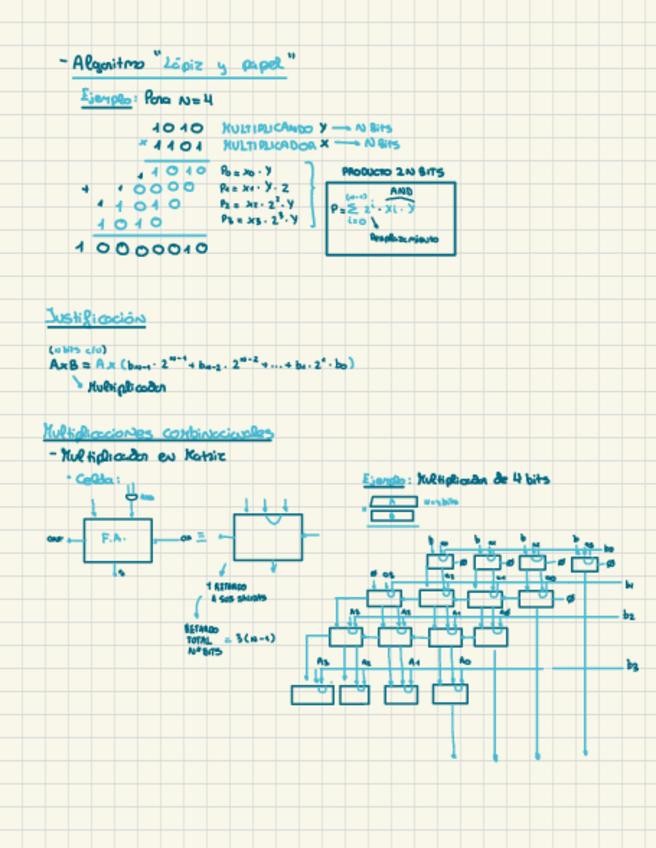 - Algoritmo "Lápiz y papel"
Ejemplo: Para N=4
1010 MULTIPLICANDO Y → N Bits
× 1101 MULTIPLICADOR X → N Bits
1010 P0 = x0 · Y
+ 0000 P1 = x1 · Y · 2
1010 P2 = x2 · 2² · Y
1010 P3 = x3 · 2³ · Y
1 0000010
PRODUCTO 2N BITS
AND
P = Σ 2^i · xi · Y
(n-1)
i=0
Desplazamiento
Justificación
(n bits c/u)
A×B = A × (bn-1 · 2^n-1 + bn-2 · 2^n-2 + ... + b1 · 2^1 · b0)
Multiplicador
Multiplicaciones combinacionales
- Multiplicador en Matriz
· Celda:
F.A.
S
1 RETARDO
A SUS SALIDAS
RETARDO
TOTAL = 3(n-1)
Nº BITS
Ejemplo: Multiplicador de 4 bits
A
×
B
b0
b1
b2
b3
A3 A2 A1 A0